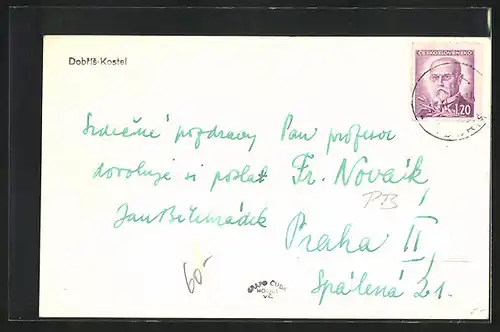 Dobříš-Kostel
ČESKOSLOVENSKO
1.20
Srdečné pozdravy
dovoluje si poslat
Pan profesor
Fr. Novák,
PB
Praha II,
Spálená 21.
60-
GRAFO ČUDA
HOLICE